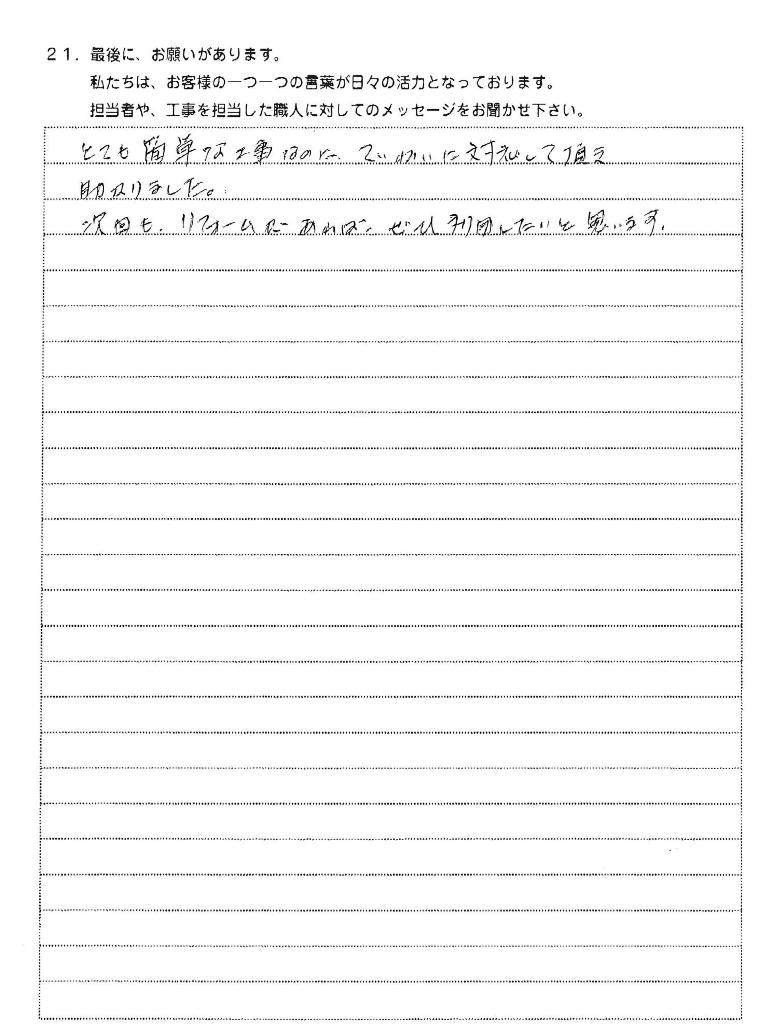 21．最後に、お願いがあります。
私たちは、お客様の一つ一つの言葉が日々の活力となっております。
担当者や、工事を担当した職人に対してのメッセージをお聞かせ下さい。
とても簡単な工事なのに、ていねいに対応して頂き
助かりました。
次回も、リフォームがあれば、ぜひ利用したいと思います。